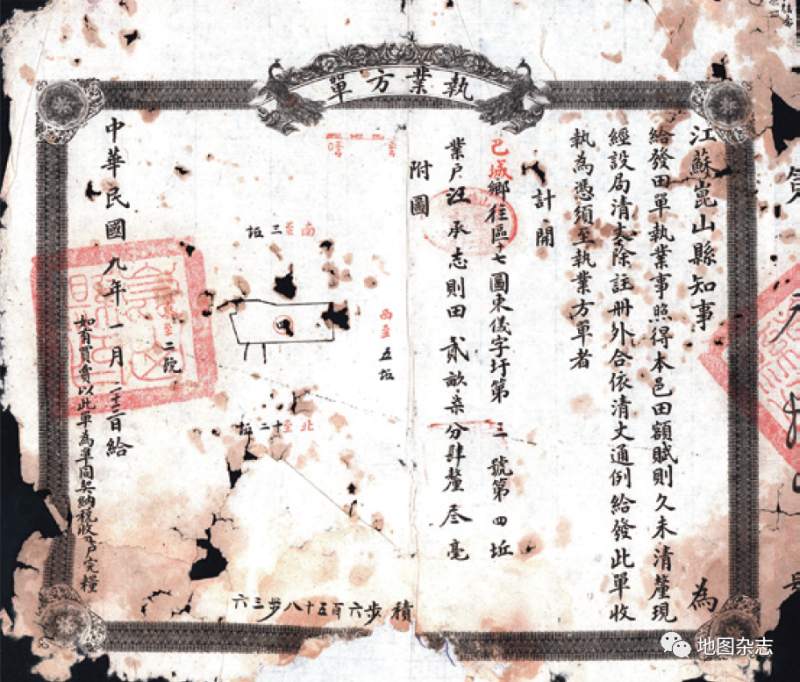 執業方單
江蘇崑山縣知事 為
給發田單執業事照得本邑田額賦則久未清釐現
經設局清丈除註冊外合依清丈通例給發此單收
執為憑須至執業方單者
計開
巴城鄉往區十七圖東儀字圩第三號第四坵
業户汪承志則田貳畝柒分肆釐叁毫
附圖
南至三坵
西至五坵
四
北至十二坵
至二號
積步六百五十八步三六
中華民國九年一月日給
如有買賣以此單為準同契納稅收戶完糧
地图杂志